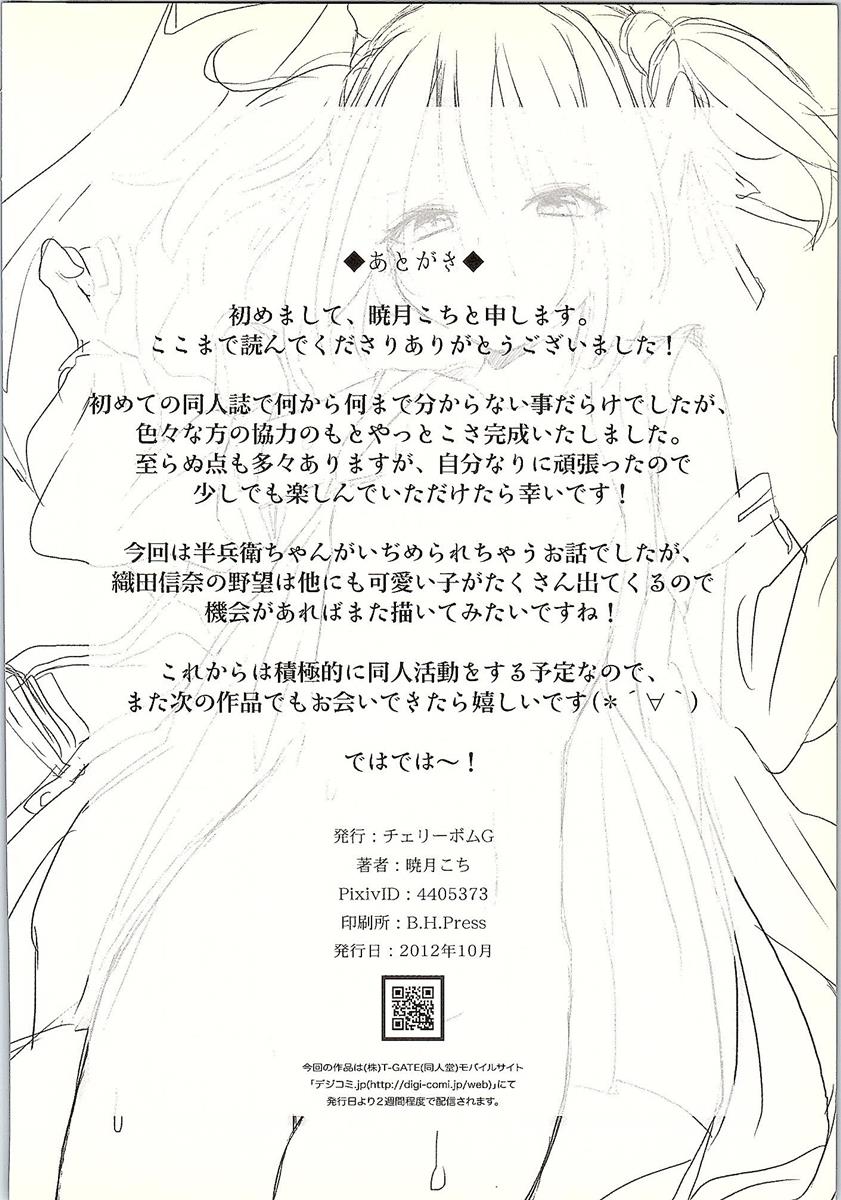 ◆あとがき◆
初めまして、暁月こちと申します。
ここまで読んでくださりありがとうございました！
初めての同人誌で何から何まで分からない事だらけでしたが、
色々な方の協力のもとやっとこさ完成いたしました。
至らぬ点も多々ありますが、自分なりに頑張ったので
少しでも楽しんでいただけたら幸いです！
今回は半兵衛ちゃんがいぢめられちゃうお話でしたが、
織田信奈の野望は他にも可愛い子がたくさん出てくるので
機会があればまた描いてみたいですね！
これからは積極的に同人活動をする予定なので、
また次の作品でもお会いできたら嬉しいです(＊´∀｀)
ではでは～！
発行：チェリーボムG
著者：暁月こち
PixivID：4405373
印刷所：B.H.Press
発行日：2012年10月
今回の作品は(株)T-GATE(同人堂)モバイルサイト
「デジコミ.jp(http://digi-comi.jp/web)」にて
発行日より2週間程度で配信されます。